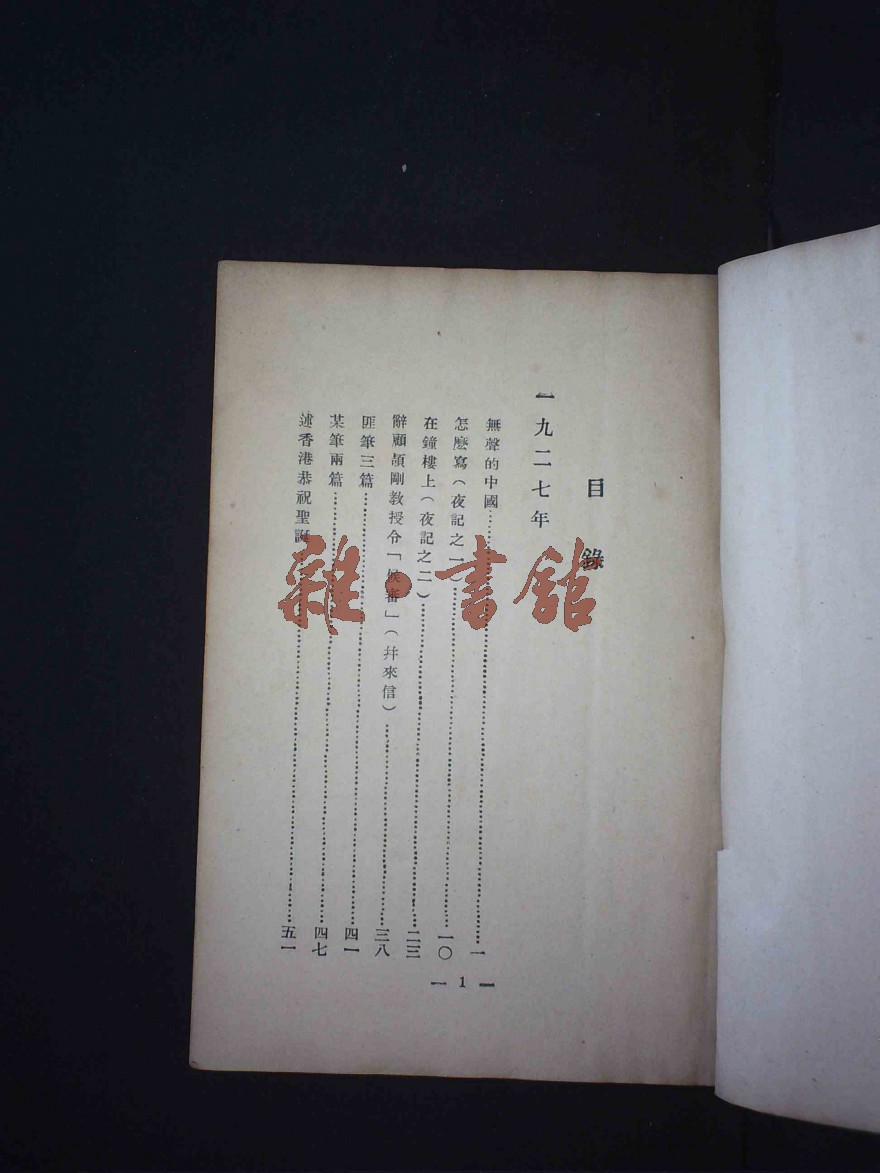 目錄
一九二七年
無聲的中國…………一
怎麽寫（夜記之一）…………一〇
在鐘樓上（夜記之二）…………二三
辭顧頡剛教授令「候審」（幷來信）…………三八
匪筆三篇…………四一
某筆兩篇…………四七
述香港恭祝聖誕…………五一
— 1 —
雜·書館